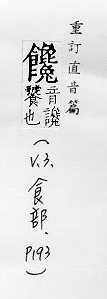 重訂直音篇
饞
音讒
饕也
(V.3、食部、P193)